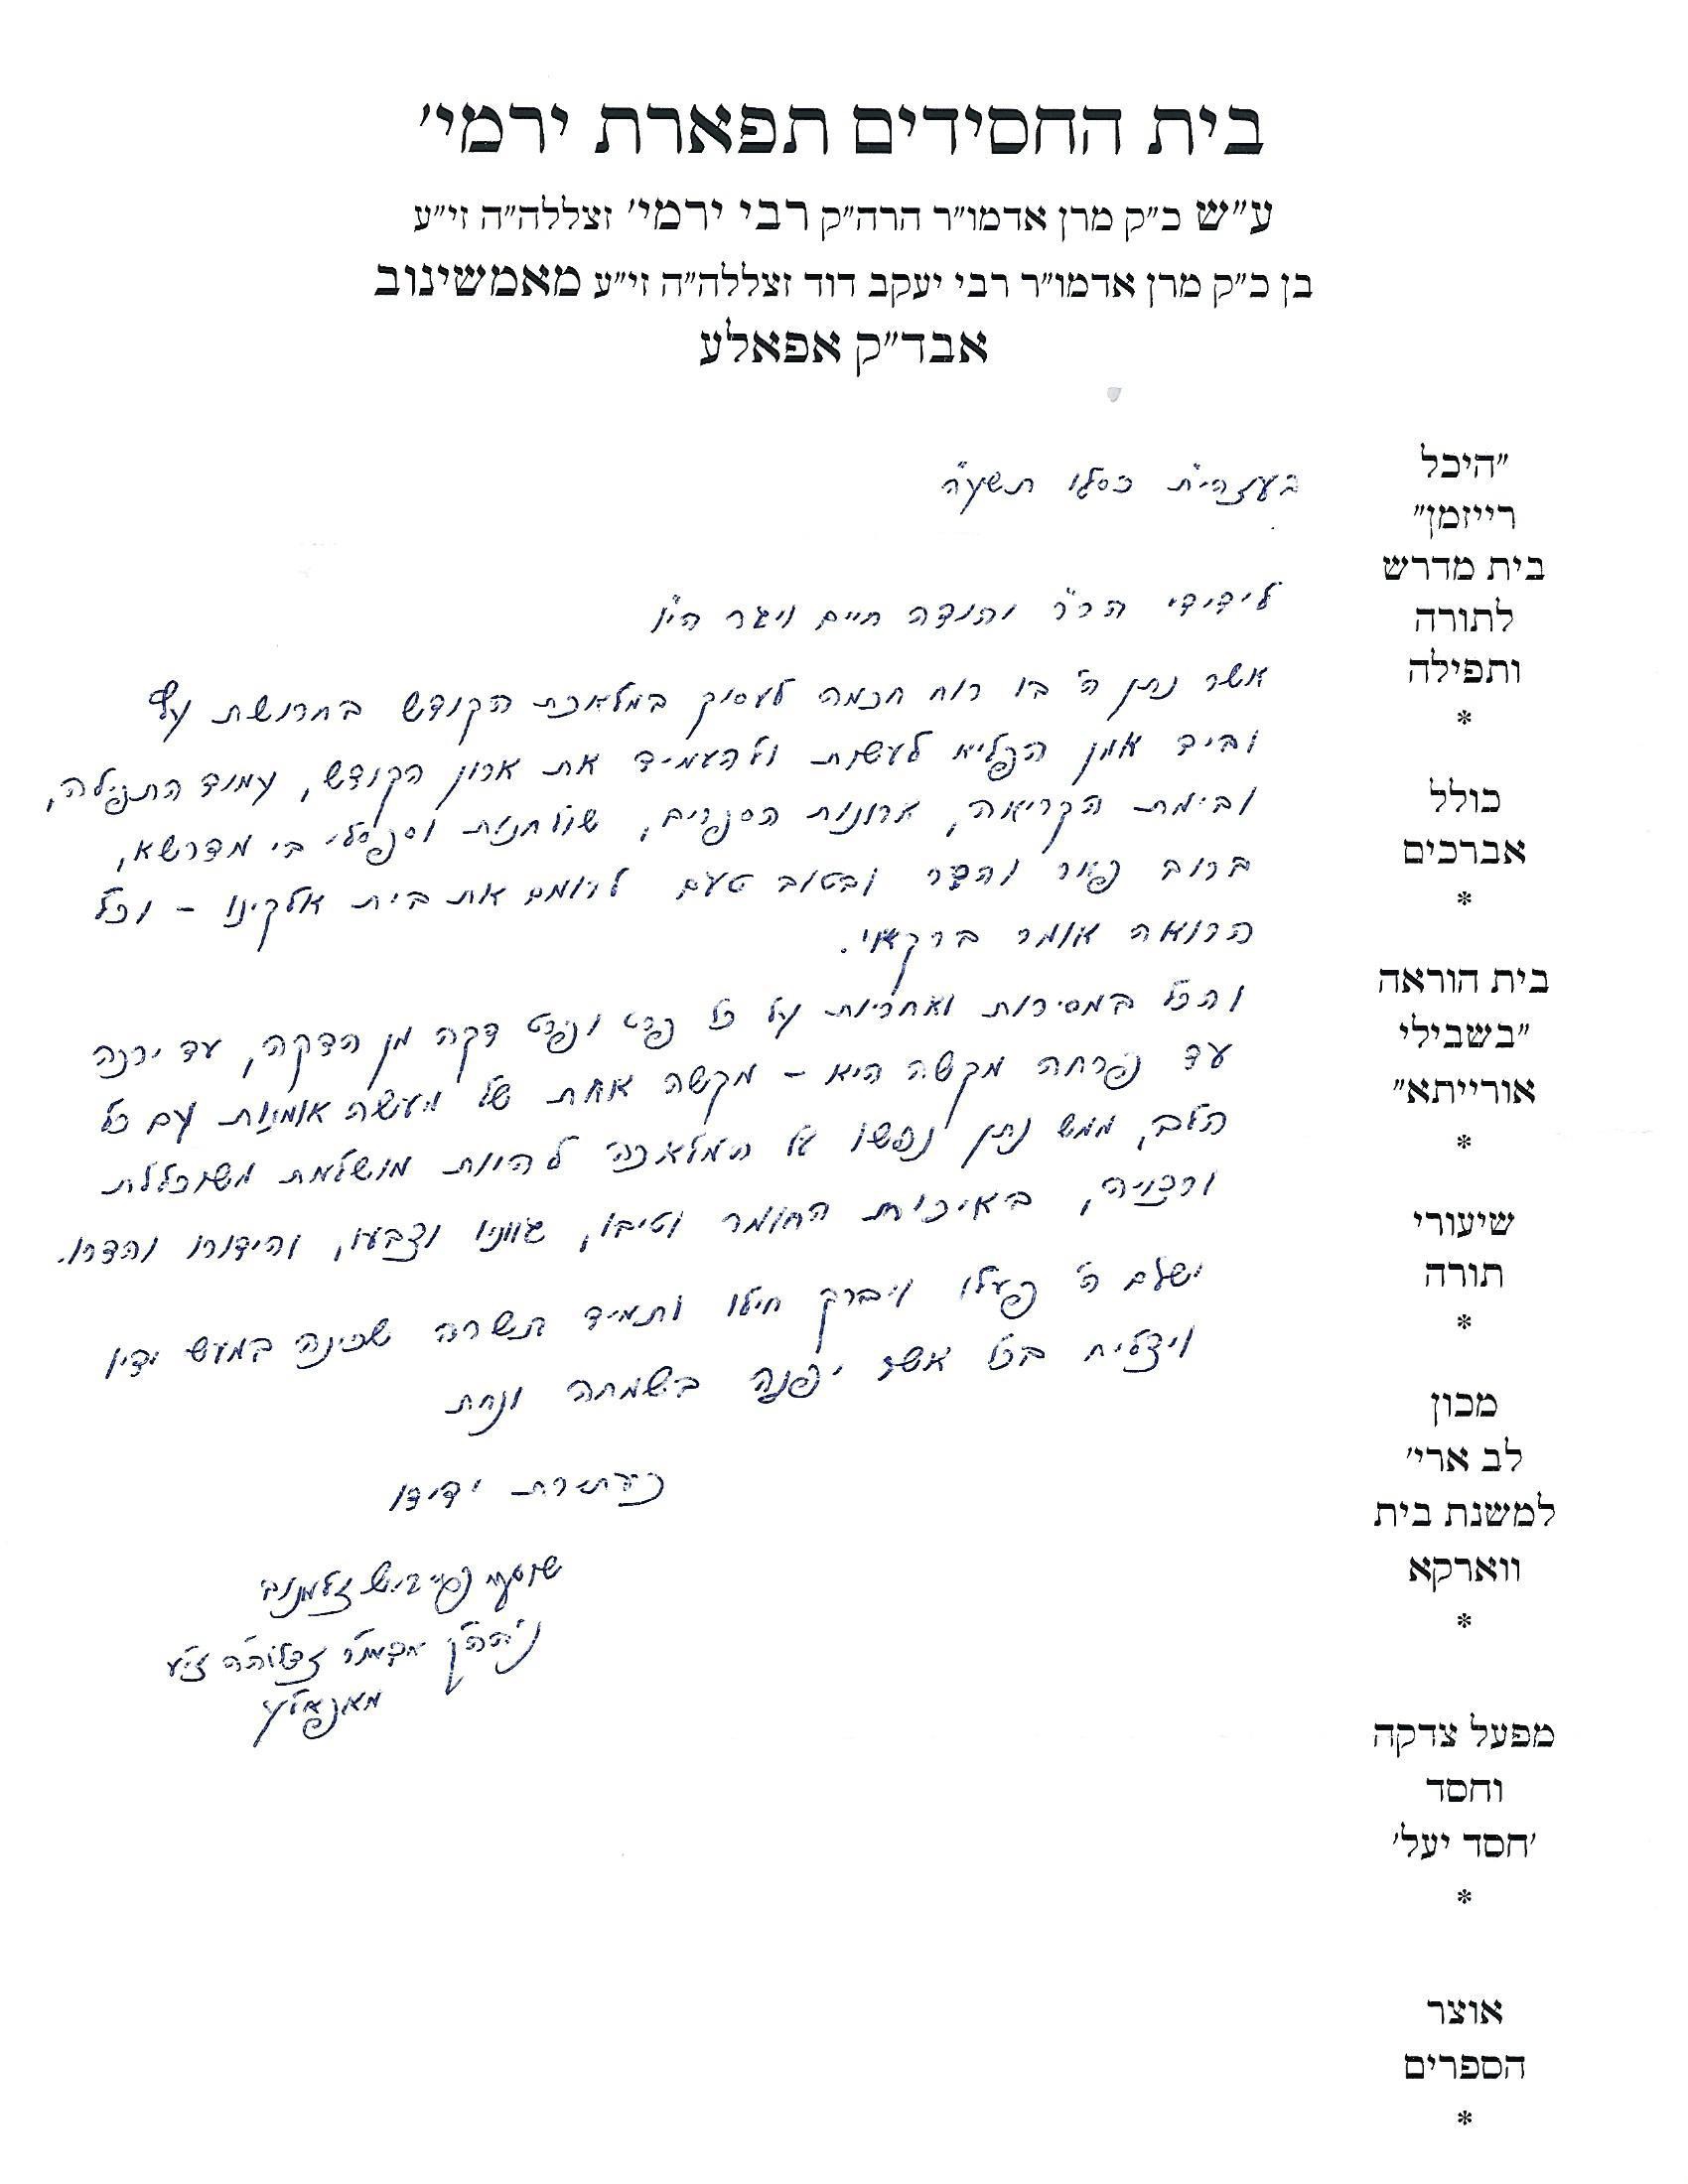 בית החסידים תפארת ירמי׳
ע״ש כ״ק מרן אדמו״ר הרה״ק רבי ירמי׳ זצללה״ה זי״ע
בן כ״ק מרן אדמו״ר רבי יעקב דוד זצללה״ה זי״ע מאמשינוב
אבד״ק אפאלע
״היכל
רייזמן״
בית מדרש
לתורה
ותפילה
*
כולל
אברכים
*
בית הוראה
״בשבילי
אורייתא״
*
שיעורי
תורה
*
מכון
לב ארי׳
למשנת בית
ווארקא
*
מפעל צדקה
וחסד
׳חסד יעל׳
*
אוצר
הספרים
*
בעזהי״ת כסלו תשע״ה
לידידי הר״ר חיים ויגר הי״ו
אשר נתן ה׳ בו רוח חכמה לעסוק במלאכת הקודש בחרושת עץ
וביד אמן הפליא לעשות ולהעמיד את ארון הקודש, עמוד התפילה,
ובימת הקריאה, ארונות הספרים, שולחנות וספסלי בי מדרשא,
ברוב פאר והדר ובטוב טעם לרומם את בית אלקינו - וכל
הרואה אומר ברקאי.
והכל במסירות ואחריות על כל פרט ופרט דקה מן הדקה, עד ירכה
עד פרחה מקשה היא - מקשה אחת של מעשה אומנות עם כל
הלב, ממש נתן נפשו על המלאכה להיות מושלמת משוכללת
ורצויה, באיכות החומר וטיבו, גווניו וצבעו, והידורו והדרו.
ישלם ה׳ פעלו ויברך חילו ותמיד תשרה שכינה במעש ידיו
ויצליח בכל אשר יפנה בשמחה ונחת
כעתירת ידידו
זלמנוב
זי״ע
מאפאלע